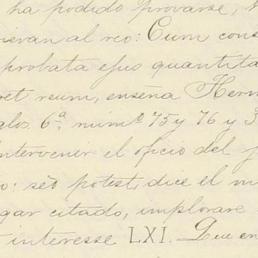 ha podido provarse, 
nevan al reo: Cum cons
probata ejus quantita
ret reum, enseña Herm
alos 6ª num.s 75 y 76 y 3
ntervenir el oficio del j
o: sed potest, dice el m
gar citado, implorare
interesse LXI. Que en